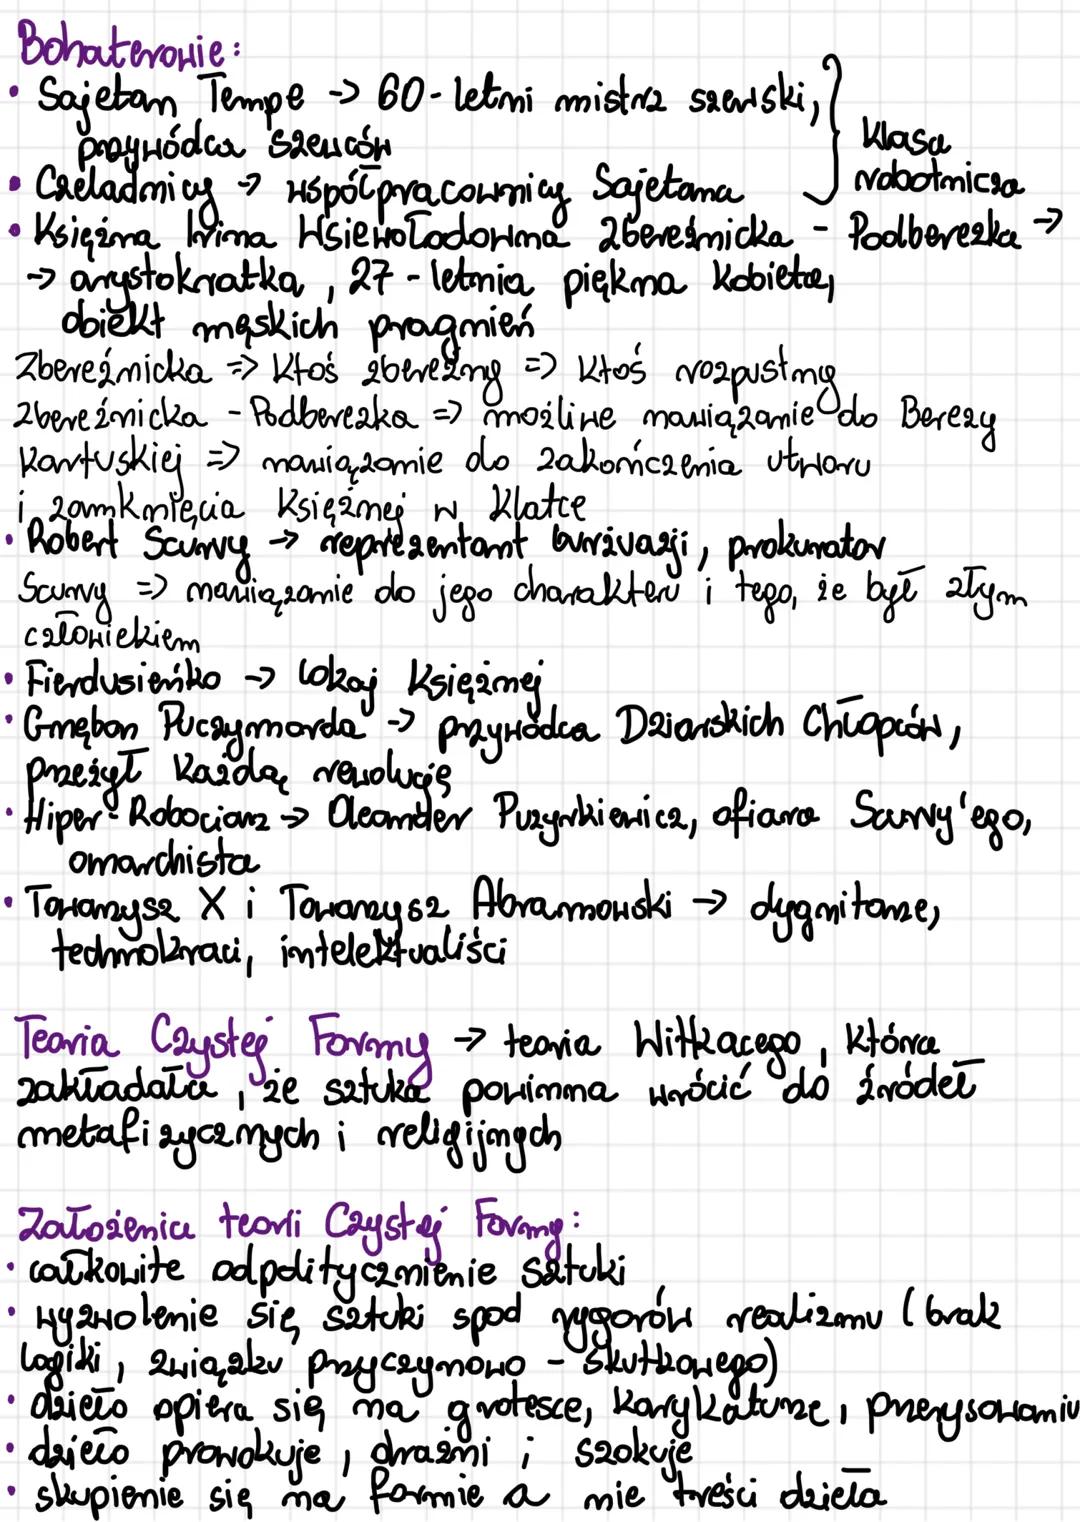 Bohaterowie:
• Sajetan Tempe → 60-letni mistrz szewski,
przywódca szewców
Klasa
robotnicza
• Czeladnicy → współpracownicy Sajetana
• Księżna Irina Wsiewołodowna Zbereźnicka - Podberezka →
→ arystokratka, 27-letnia piękna kobieta,
obiekt męskich pragnień
Zbereźnicka => ktoś zbereźny => ktoś rozpustny
Zbereźnicka - Podberezka => możliwe nawiązanie do Berezy
Kartuskiej => nawiązanie do zakończenia utworu
i zamknięcia Księżnej w klatce
• Robert Scurvy → reprezentant burżuazji, prokurator
Scurvy => nawiązanie do jego charakteru i tego, że był złym
człowiekiem
• Fierdusieńko → lokaj Księżnej
• Gnębon Puczymorda → przywódca Dziarskich Chłopców,
przeżył każdą rewolucję
• Hiper-Robociarz → Oleander Puzyrkiewicz, ofiara Scurvy'ego,
anarchista
• Towarzysz X i Towarzysz Abramowski → dygnitarze,
technokraci, intelektualiści
Teoria Czystej Formy → teoria Witkacego, która
zakładała, że sztuka powinna wrócić do źródeł
metafizycznych i religijnych
Założenia teorii Czystej Formy:
• całkowite odpolitycznienie sztuki
• wyzwolenie się sztuki spod rygorów realizmu (brak
logiki, związku przyczynowo - skutkowego)
• dzieło opiera się na grotesce, karykaturze, przerysowaniu
• dzieło prowokuje, drażni i szokuje
• skupienie się na formie a nie treści dzieła